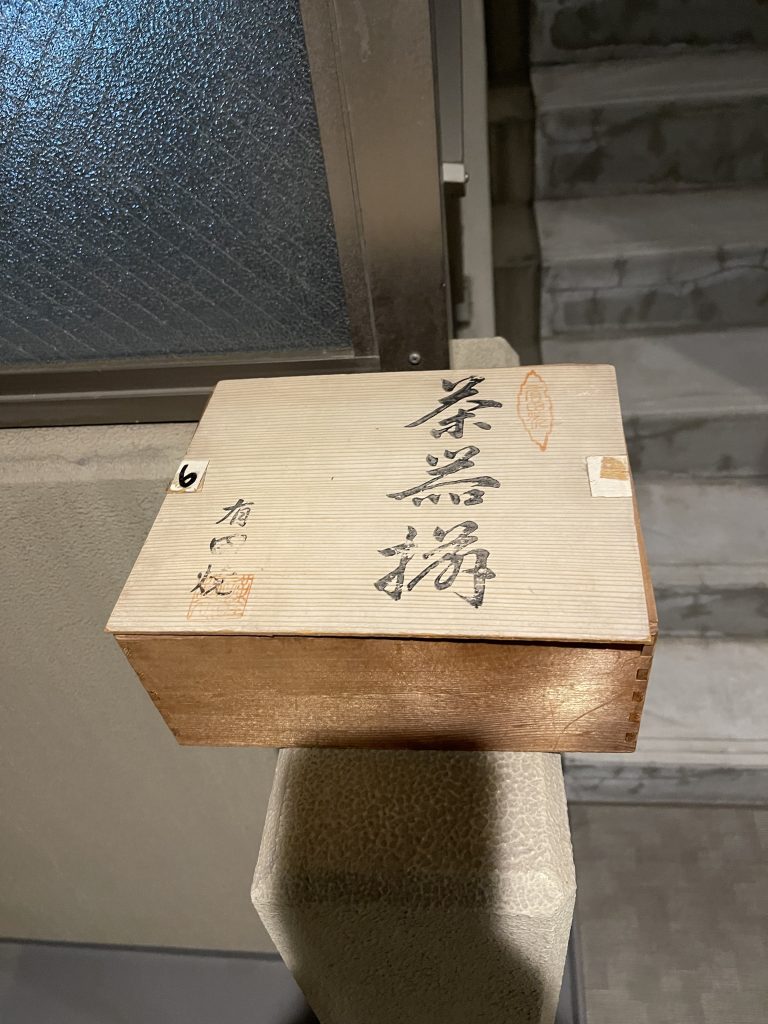 茶器揃
有田焼
6